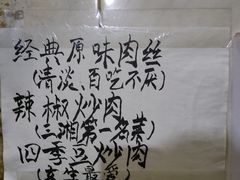 经典原味肉丝
(清淡、百吃不厌)
辣椒炒肉
(三湘第一名菜)
四季豆炒肉